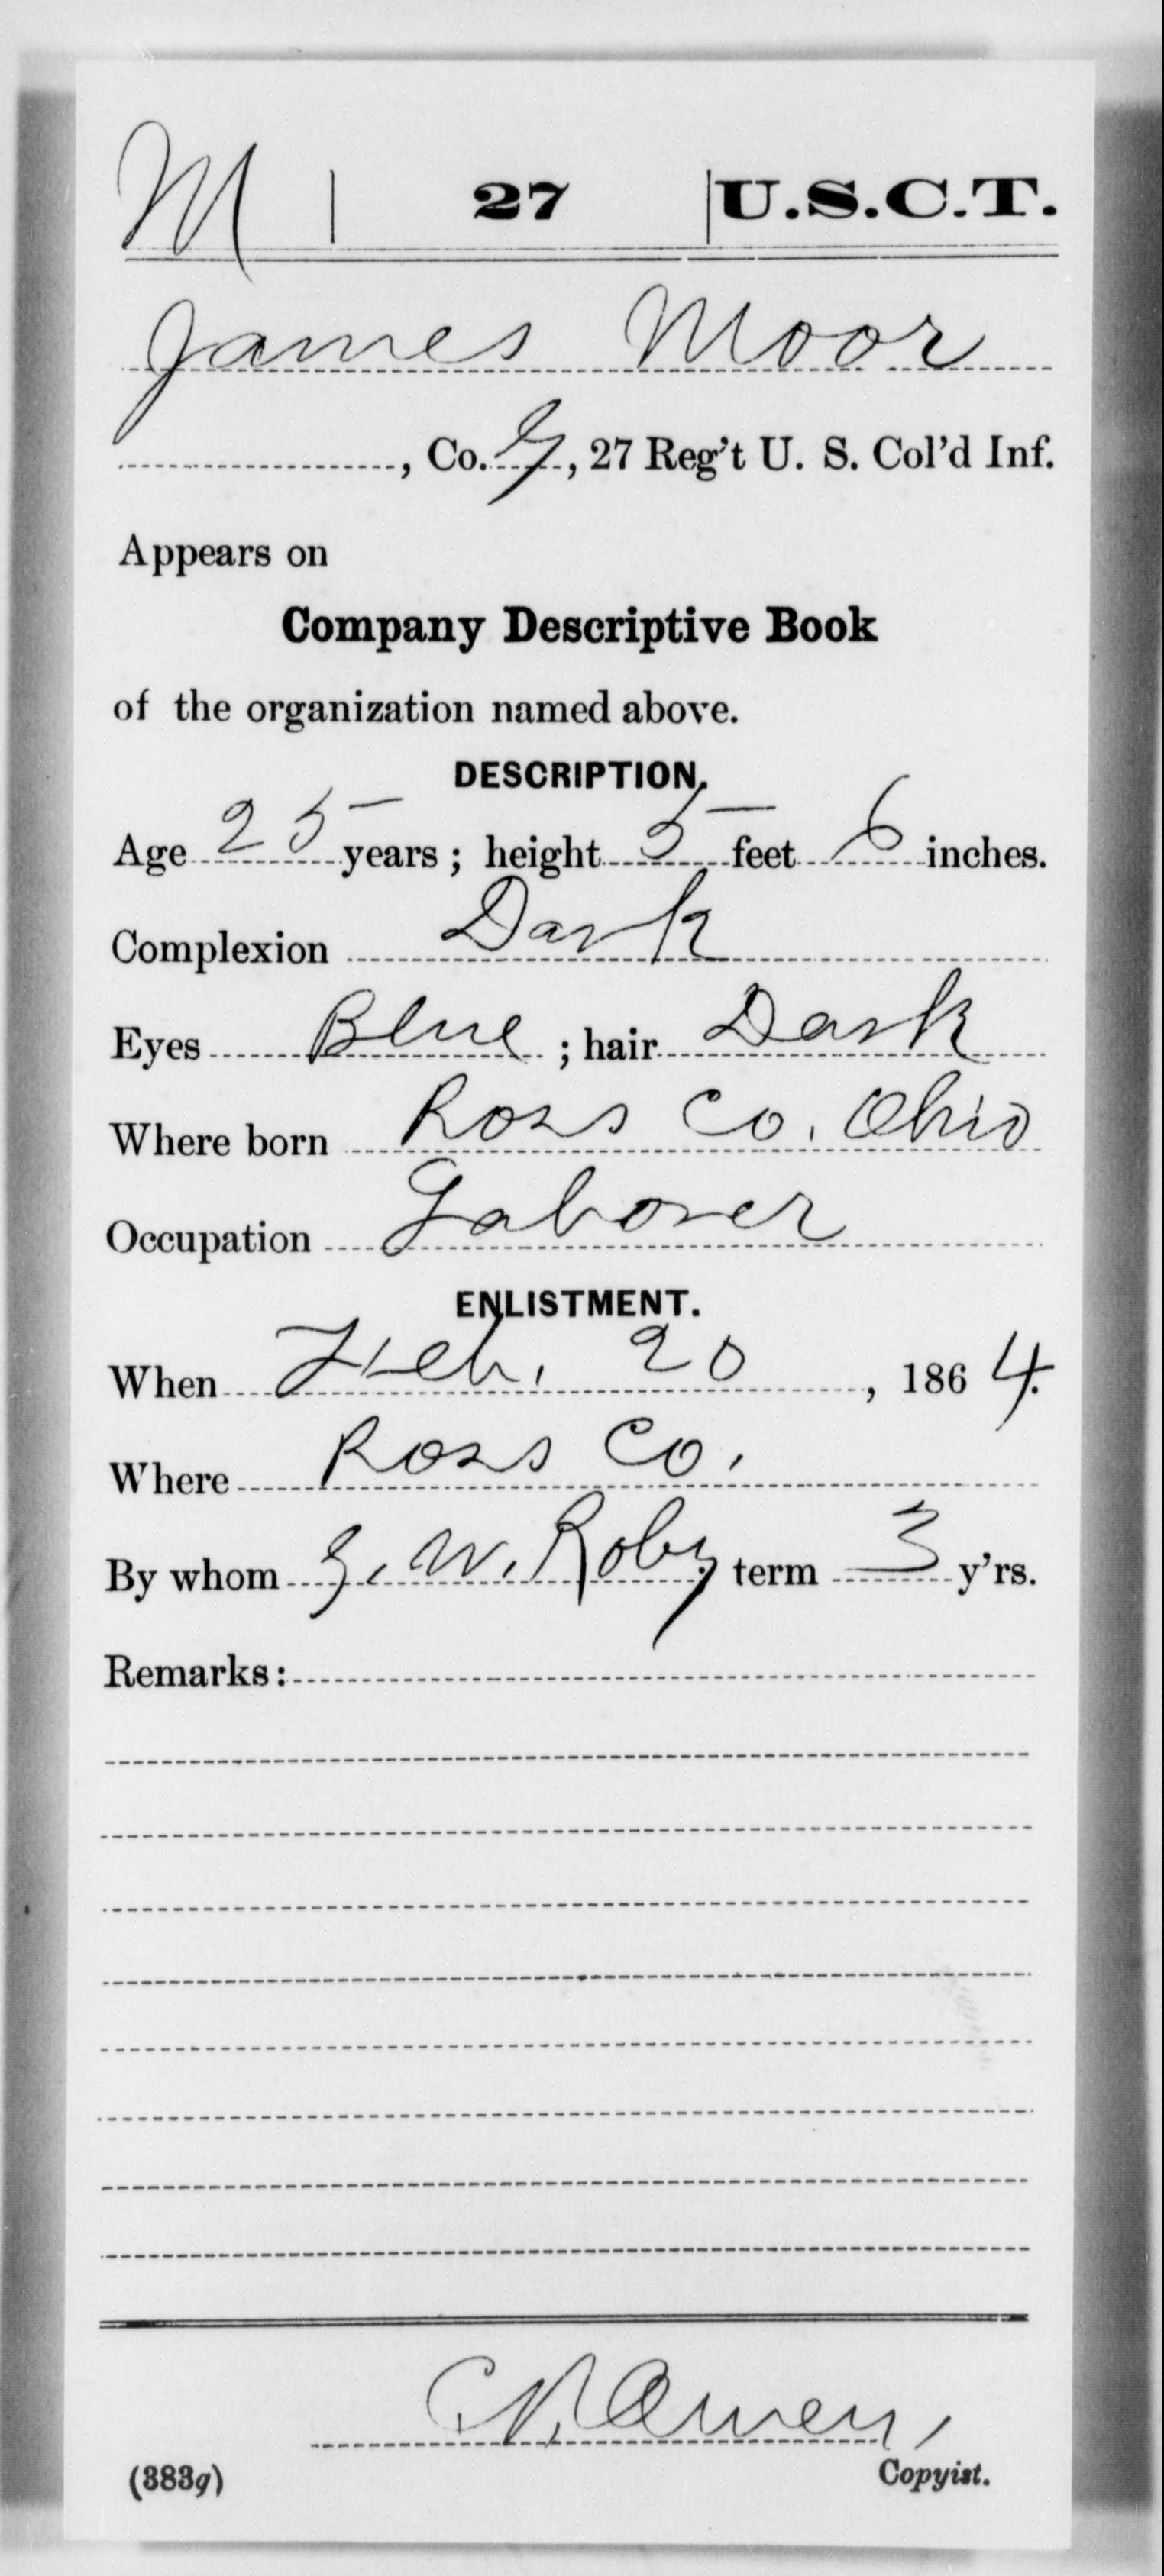 M | 27 | U.S.C.T.
James Moor
, Co. G, 27 Reg't U. S. Col'd Inf.
Appears on
Company Descriptive Book
of the organization named above.
DESCRIPTION.
Age 25 years; height 5 feet 6 inches.
Complexion Dark
Eyes Blue; hair Dark
Where born Ross Co. Ohio
Occupation Laborer
ENLISTMENT.
When Feb. 20, 1864.
Where Ross Co.
By whom G. W. Roby term 3 y'rs.
Remarks:
Owen
(383g) Copyist.